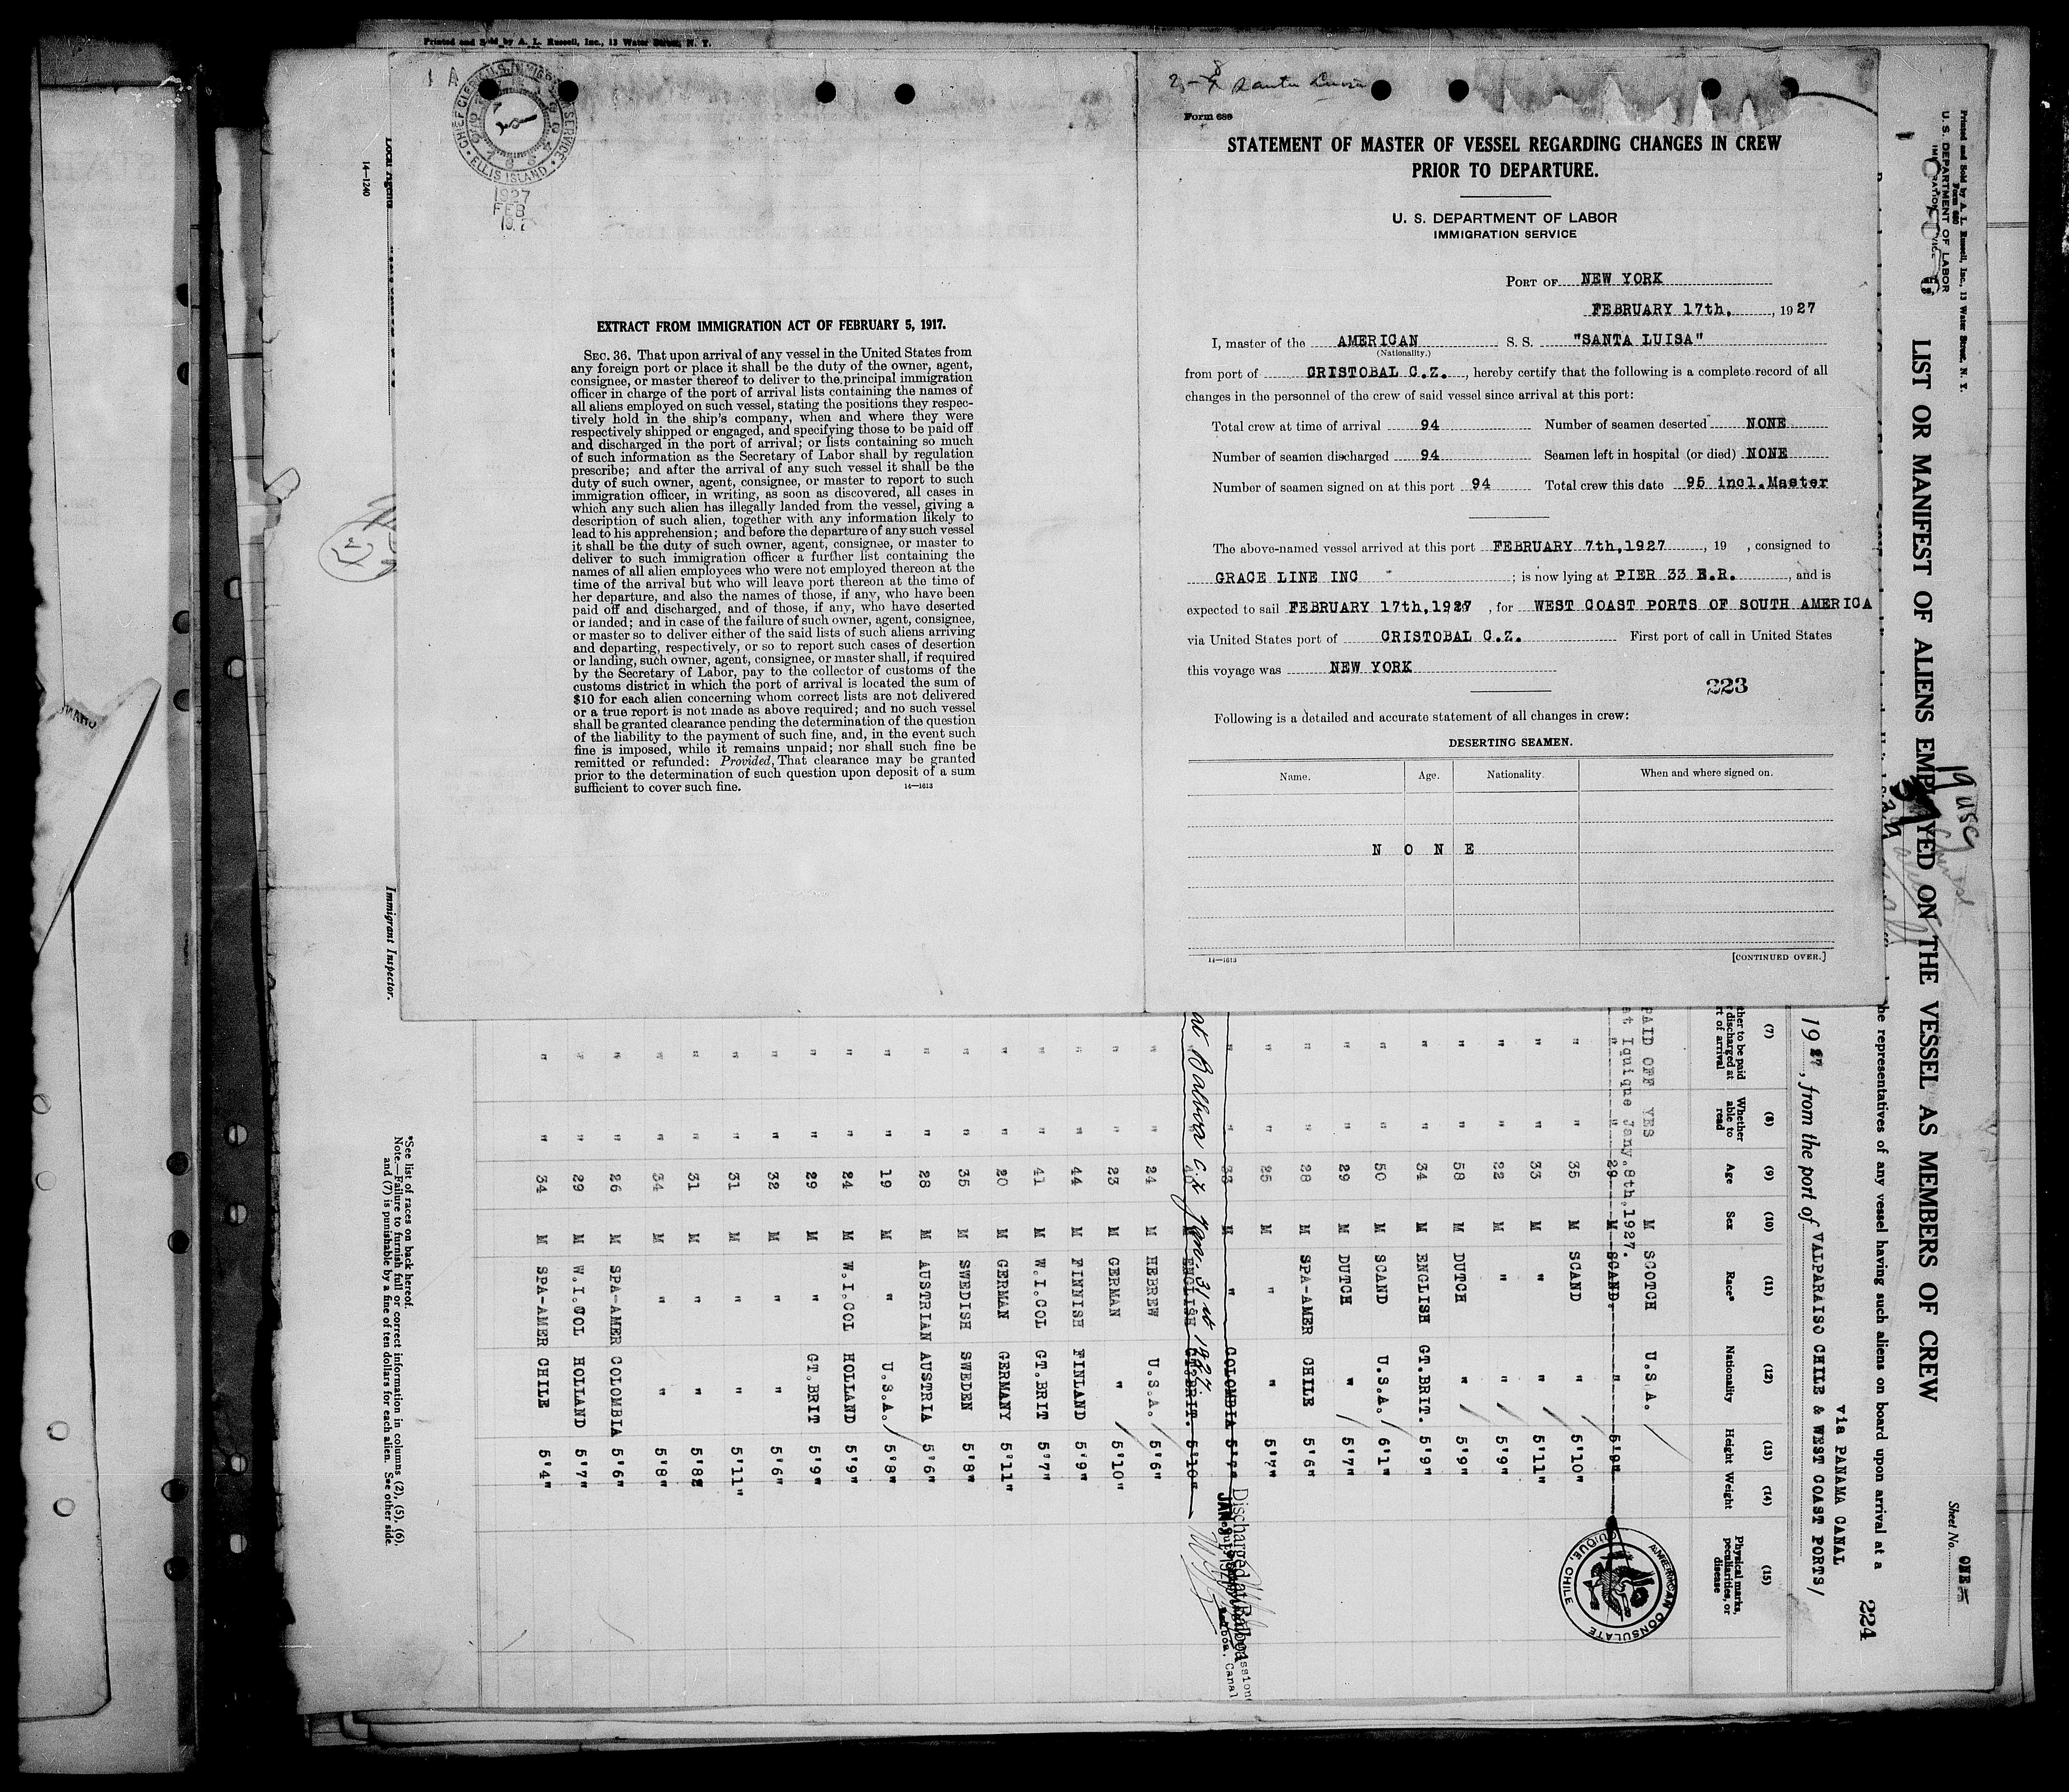 Printed and Sold by A. L. Russell, Inc., 13 Water Street, N. Y.
CHIEF CLERK U.S. IMMIGR SERVICE
ELLIS ISLAND
1927
FEB
14—1240
Immigrant Inspector.
EXTRACT FROM IMMIGRATION ACT OF FEBRUARY 5, 1917.
SEC. 36. That upon arrival of any vessel in the United States from
any foreign port or place it shall be the duty of the owner, agent,
consignee, or master thereof to deliver to the principal immigration
officer in charge of the port of arrival lists containing the names of
all aliens employed on such vessel, stating the positions they respec-
tively hold in the ship's company, when and where they were
respectively shipped or engaged, and specifying those to be paid off
and discharged in the port of arrival; or lists containing so much
of such information as the Secretary of Labor shall by regulation
prescribe; and after the arrival of any such vessel it shall be the
duty of such owner, agent, consignee, or master to report to such
immigration officer, in writing, as soon as discovered, all cases in
which any such alien has illegally landed from the vessel, giving a
description of such alien, together with any information likely to
lead to his apprehension; and before the departure of any such vessel
it shall be the duty of such owner, agent, consignee, or master to
deliver to such immigration officer a further list containing the
names of all alien employees who were not employed thereon at the
time of the arrival but who will leave port thereon at the time of
her departure, and also the names of those, if any, who have been
paid off and discharged, and of those, if any, who have deserted
or landed; and in case of the failure of such owner, agent, consignee,
or master so to deliver either of the said lists of such aliens arriving
and departing, respectively, or so to report such cases of desertion
or landing, such owner, agent, consignee, or master shall, if required
by the Secretary of Labor, pay to the collector of customs of the
customs district in which the port of arrival is located the sum of
$10 for each alien concerning whom correct lists are not delivered
or a true report is not made as above required; and no such vessel
shall be granted clearance pending the determination of the question
of the liability to the payment of such fine, and, in the event such
fine is imposed, while it remains unpaid; nor shall such fine be
remitted or refunded: Provided, That clearance may be granted
prior to the determination of such question upon deposit of a sum
sufficient to cover such fine.
14—1613
Santa Luisa
Form 689
STATEMENT OF MASTER OF VESSEL REGARDING CHANGES IN CREW
PRIOR TO DEPARTURE.
U. S. DEPARTMENT OF LABOR
IMMIGRATION SERVICE
PORT OF NEW YORK
FEBRUARY 17th, , 1927
I, master of the AMERICAN S. S. "SANTA LUISA"
(Nationality.)
from port of CRISTOBAL C.Z. , hereby certify that the following is a complete record of all
changes in the personnel of the crew of said vessel since arrival at this port:
Total crew at time of arrival 94 Number of seamen deserted NONE
Number of seamen discharged 94 Seamen left in hospital (or died) NONE
Number of seamen signed on at this port 94 Total crew this date 95 incl.Master
The above-named vessel arrived at this port FEBRUARY 7th,1927 , 19 , consigned to
GRACE LINE INC ; is now lying at PIER 33 E.R. , and is
expected to sail FEBRUARY 17th,1927 , for WEST COAST PORTS OF SOUTH AMERICA
via United States port of CRISTOBAL C.Z. First port of call in United States
this voyage was NEW YORK
223
Following is a detailed and accurate statement of all changes in crew:
DESERTING SEAMEN.
Name. Age. Nationality. When and where signed on.
N O N E
14—1613
[CONTINUED OVER.]
Printed and Sold by A. L. Russell, Inc., 13 Water Street, N. Y.
Form 680
U. S. DEPARTMENT OF LABOR
Sheet No. ONE
LIST OR MANIFEST OF ALIENS EMPLOYED ON THE VESSEL AS MEMBERS OF CREW
19 USC
the representatives of any vessel having such aliens on board upon arrival at a
224
via PANAMA CANAL
1927, from the port of VALPARAISO CHILE & WEST COAST PORTS/
(7) (8) (9) (10) (11) (12) (13) (14) (15)
Whether able to read Age Sex Race* Nationality Height Weight Physical marks, peculiarities, or disease
PAID OFF YES M SCOTCH U.S.A.
at Iquique Jany.8th,1927.
" " 29 M SCAND. " 5'9"
AMERICAN CONSULATE
IQUIQUE, CHILE
" " 35 M SCAND " 5'10"
" " 33 M " " 5'11"
" " 22 M " " 5'9"
" " 58 M DUTCH " 5'9"
" " 34 M ENGLISH GT.BRIT. 5'9"
" " 50 M SCAND U.S.A. 6'1"
" " 29 M DUTCH " 5'7"
" " 28 M SPA-AMER CHILE 5'6"
" " 25 M " " 5'7"
" " 33 M " COLOMBIA 5'7"
Discharged at Balboa
at Balboa C.Z. Jan. 31st 1927.
" " 40 M ENGLISH GT.BRIT. 5'10"
" " 24 M HEBREW U.S.A. 5'6"
" " 23 M GERMAN " 5'10"
" " 44 M FINNISH FINLAND 5'9"
" " 41 M W.I.COL GT.BRIT 5'7"
" " 20 M GERMAN GERMANY 5'11"
" " 35 M SWEDISH SWEDEN 5'8"
" " 28 M AUSTRIAN AUSTRIA 5'6"
" " 19 M " U.S.A. 5'8"
" " 24 M W.I.COL HOLLAND 5'9"
" " 29 M " GT.BRIT 5'9"
" " 32 M " " 5'6"
" " 31 M " " 5'11"
" " 31 M " " 5'8"
" " 34 M " " 5'8"
" " 26 M SPA-AMER COLOMBIA 5'6"
" " 29 M W.I.COL HOLLAND 5'7"
" " 34 M SPA-AMER CHILE 5'4"
*See list of races on back hereof.
Note.—Failure to furnish full or correct information in columns (2), (5), (6),
and (7) is punishable by a fine of ten dollars for each alien. See other side.